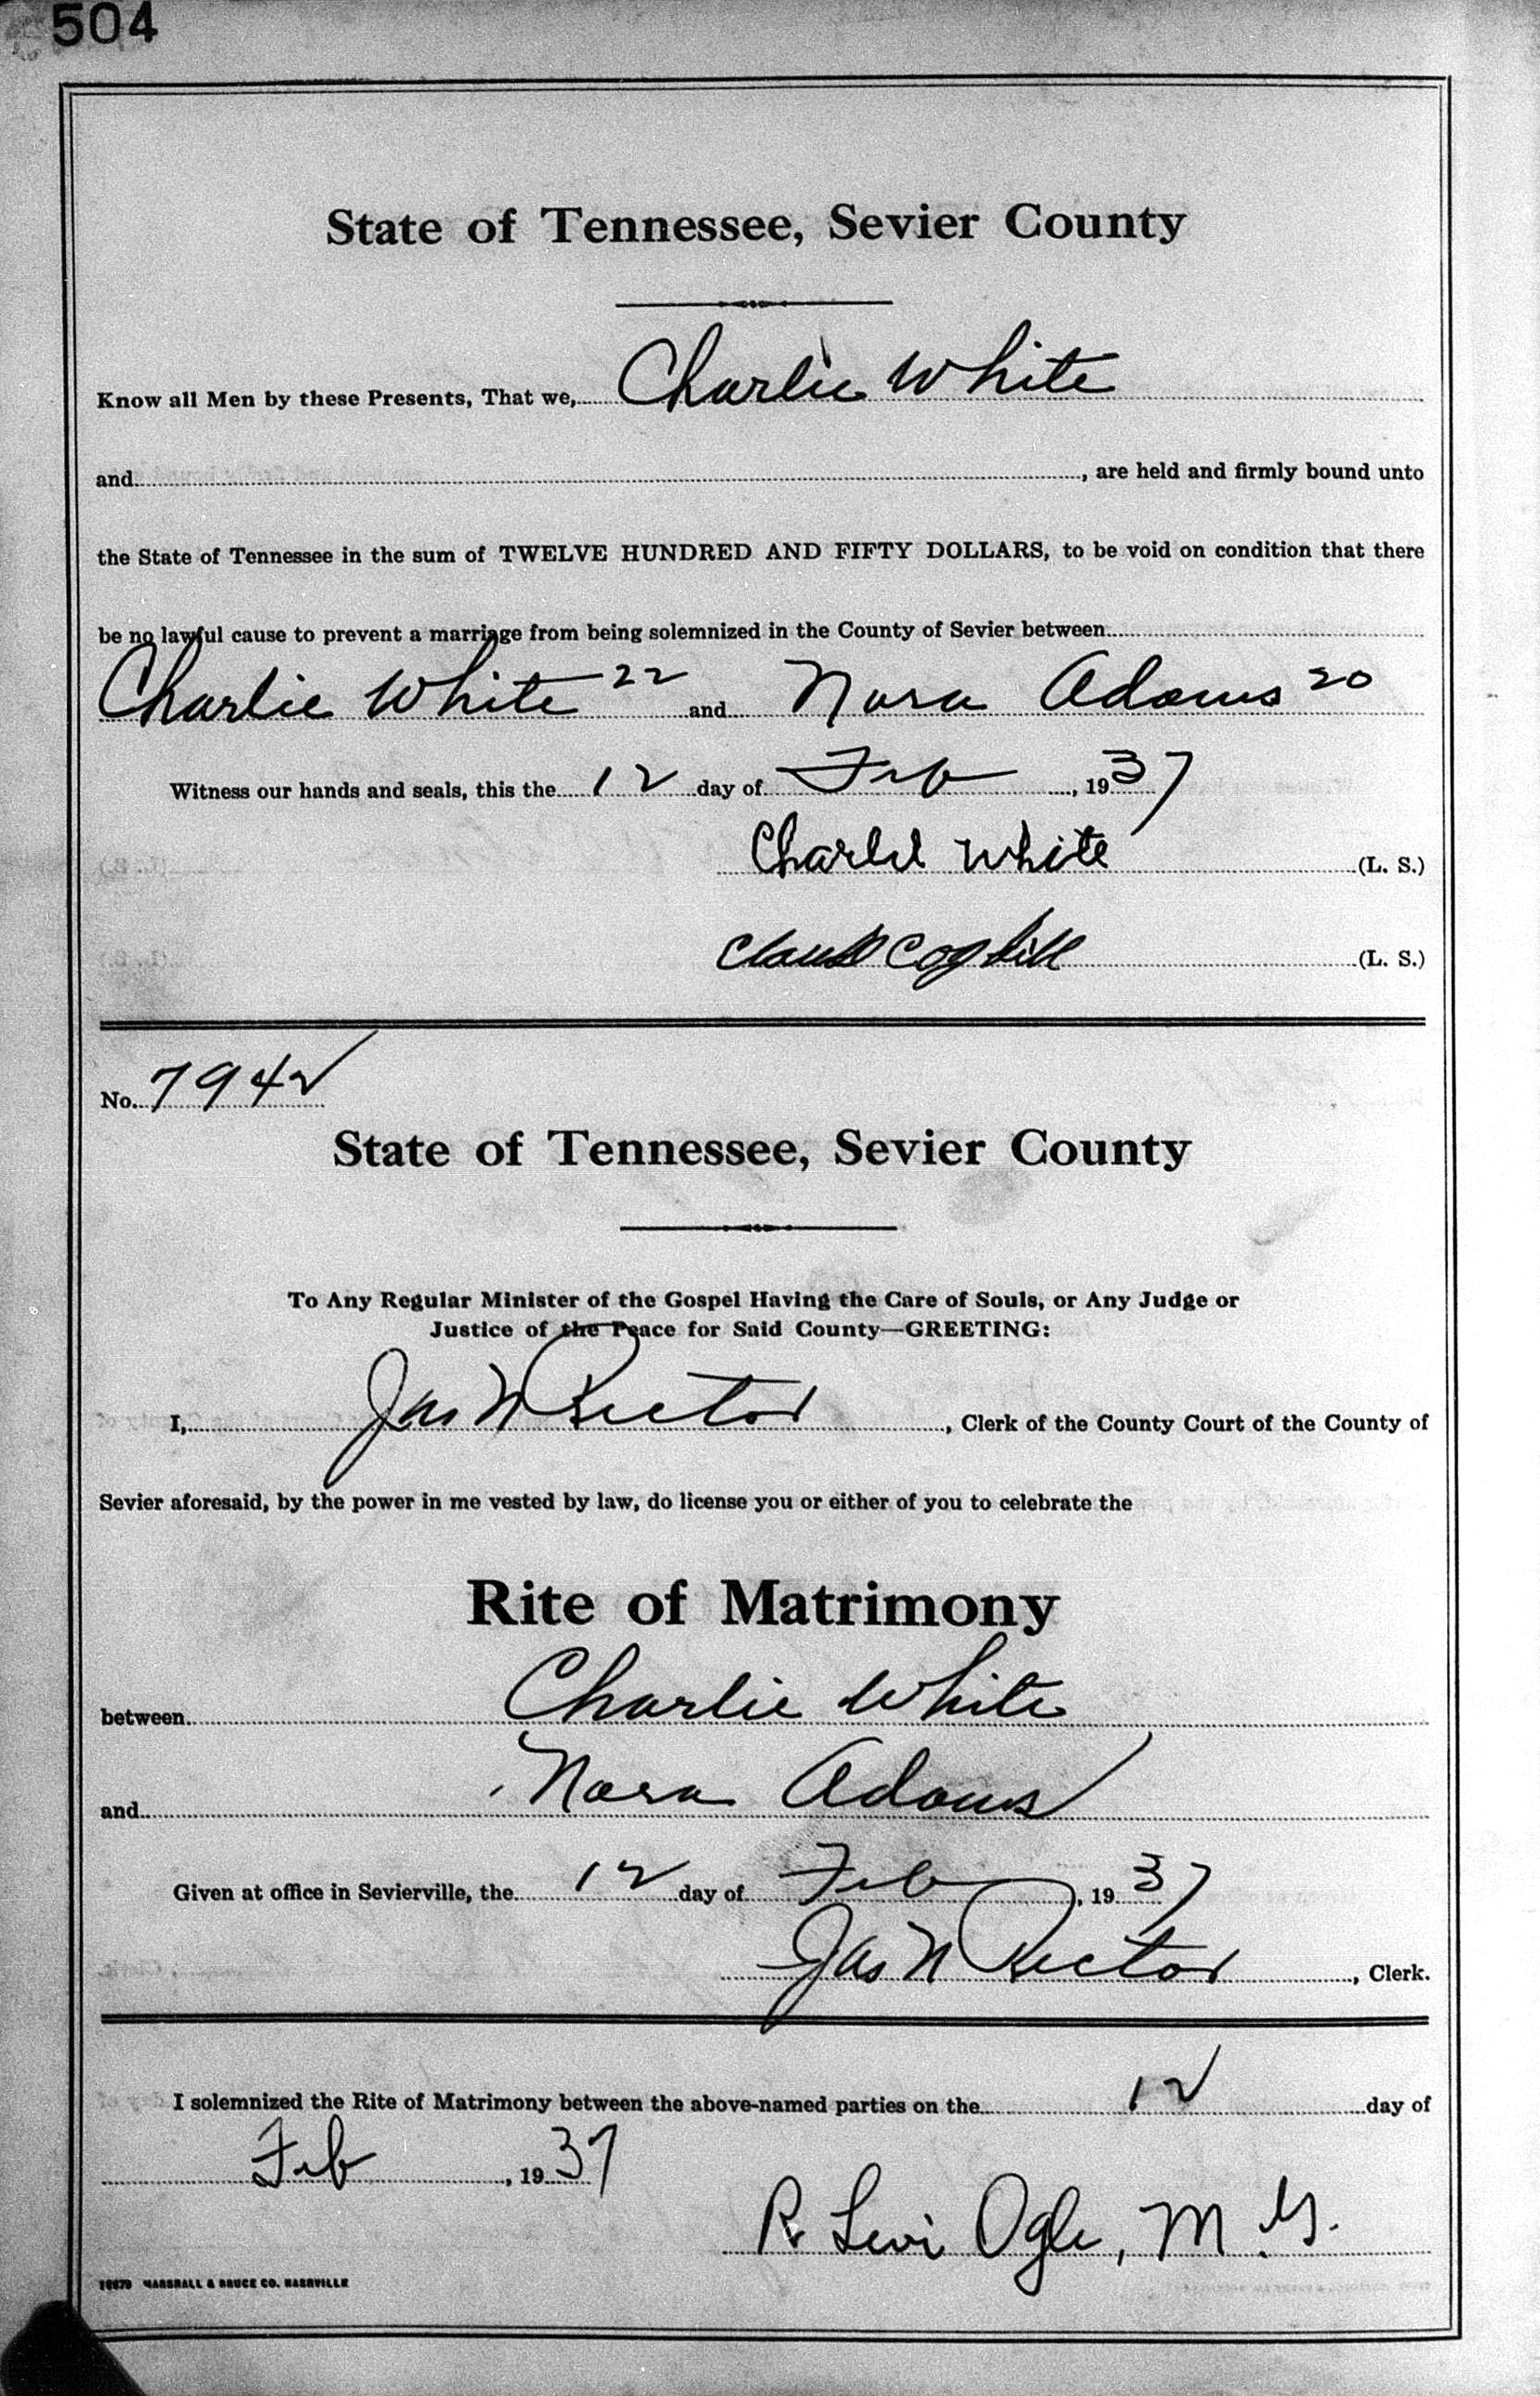 504
State of Tennessee, Sevier County
Know all Men by these Presents, That we, Charlie White
and , are held and firmly bound unto
the State of Tennessee in the sum of TWELVE HUNDRED AND FIFTY DOLLARS, to be void on condition that there
be no lawful cause to prevent a marriage from being solemnized in the County of Sevier between
Charlie White 22 and Nora Adams 20
Witness our hands and seals, this the 12 day of Feb , 1937
Charlie White (L. S.)
Claude Coghill (L. S.)
No. 7942
State of Tennessee, Sevier County
To Any Regular Minister of the Gospel Having the Care of Souls, or Any Judge or
Justice of the Peace for Said County—GREETING:
I, Jas N Rector , Clerk of the County Court of the County of
Sevier aforesaid, by the power in me vested by law, do license you or either of you to celebrate the
Rite of Matrimony
between Charlie White
and Nora Adams
Given at office in Sevierville, the 12 day of Feb , 1937
Jas N Rector , Clerk.
I solemnized the Rite of Matrimony between the above-named parties on the 12 day of
Feb , 1937
R Levi Ogle, M.G.
MARSHALL & BRUCE CO. NASHVILLE